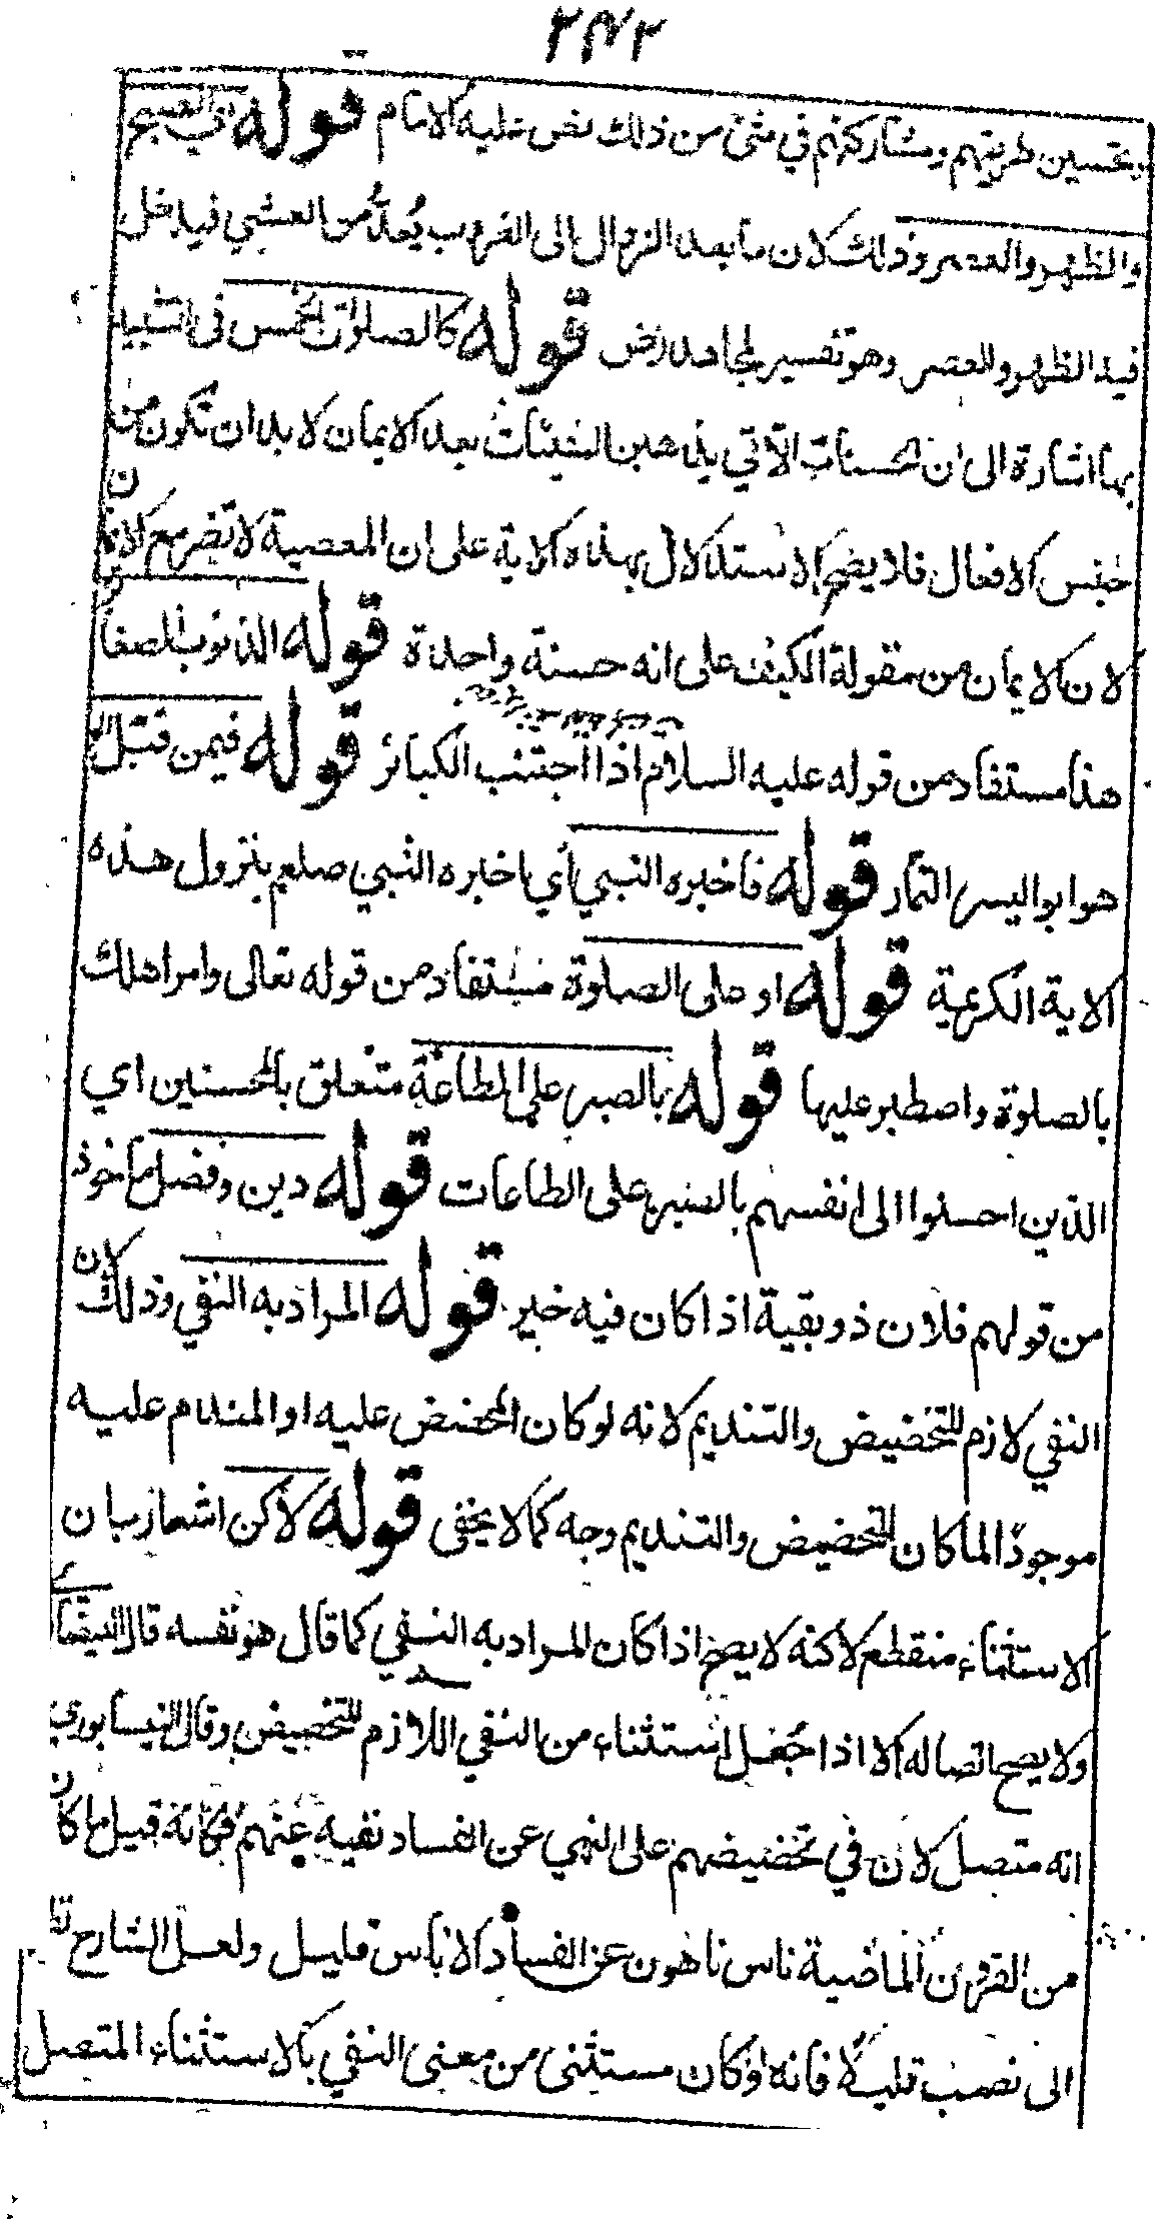 ٢٧٢
وتحسين طريقهم ومشاركتهم في شئ من ذلك نص عليه الامام قوله اي الصبح
والظهر والعصر وذلك لان ما بعد الزوال الى الغروب يُعدّ من العشي فيدخل
فيه الظهر والعصر وهو تفسير لمجاهد رض قوله كالصلوات الخمس فى التشبيه
بها اشارة الى ان الحسنات الآتي يذهبن السّيّئات بعد الايمان لا بد ان تكون من
جنس الافعال فلا يصح الاستدلال بهذه الاية على ان المعصية لا تضر مع الايمان
لان الايمان من مقولة الكيف على انه حسنة واحدة قوله الذنوب الصغائر
هذا مستفاد من قوله عليه السلام اذا اجتنب الكبائر قوله فيمن قبّل
هو ابو اليسر التمار قوله فاخبره النبي أي اخبره النبي صلعم بنزول هذه
الاية الكريمة قوله او على الصلوة مستفاد من قوله تعالى وامر اهلك
بالصلوة واصطبر عليها قوله بالصبر على الطاعة متعلق بالمحسنين اي
الذين احسنوا الى انفسهم بالصبر على الطاعات قوله دين وفضل ماخوذ
من قولهم فلان ذو بقية اذا كان فيه خير قوله المراد به النفي وذلك لان
النفي لازم للتحضيض والتنديم لانه لو كان المحضض عليه او المندم عليه
موجودًا لما كان للتحضيض والتنديم وجه كما لا يخفى قوله لاكن اشعار بان
الاستثناء منقطع لاكنه لا يصح اذا كان المراد به النفي كما قال هو نفسه قال
ولا يصح اتصاله الا اذا جُعل استثناء من النفي اللازم للتحضيض وقال النيسابوري
انه متصل لان في تحضيضهم على النهي عن الفساد نفيه عنهم فكانّه قيل ما كان
من القرون الماضية ناس ناهون عن الفساد الا ناس قليل ولعل الشارح نظر
الى نصب قليلًا فانه لو كان مستثنى من معنى النفي بالاستثناء المتصل